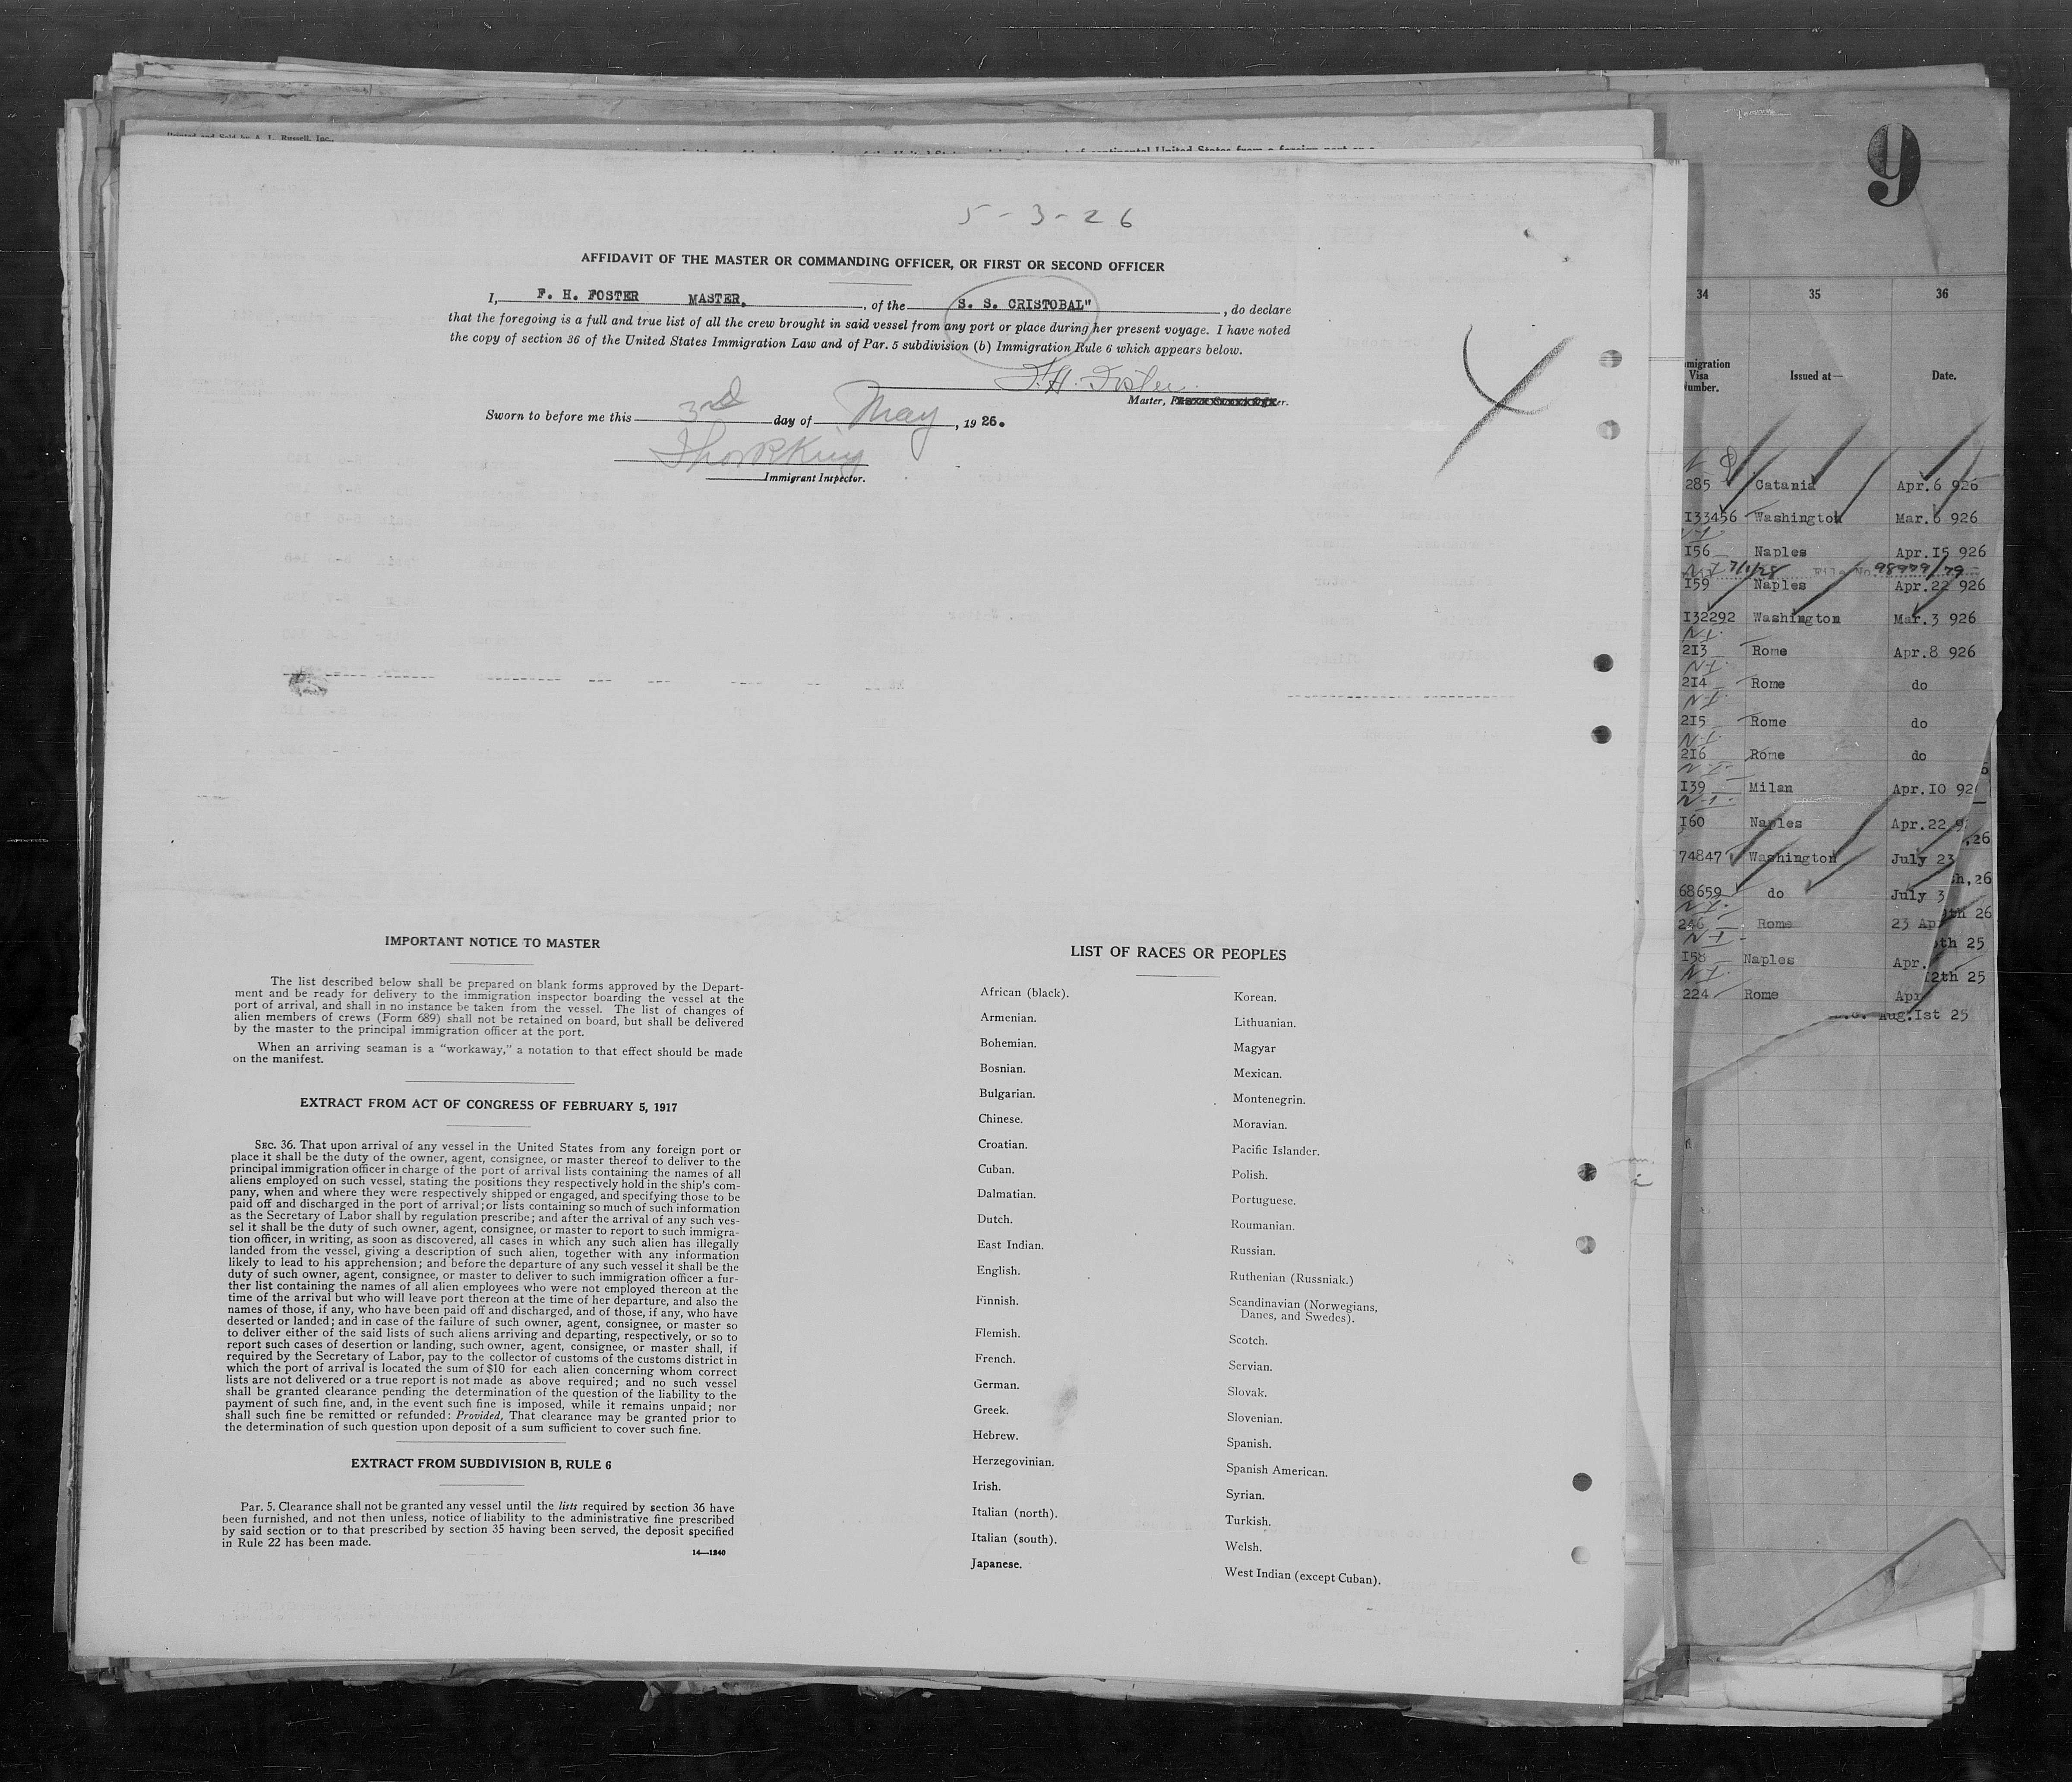 Printed and Sold by A. L. Russell, Inc.,
9
5-3-26
AFFIDAVIT OF THE MASTER OR COMMANDING OFFICER, OR FIRST OR SECOND OFFICER
I, F. H. FOSTER MASTER, , of the S. S. CRISTOBAL" , do declare
that the foregoing is a full and true list of all the crew brought in said vessel from any port or place during her present voyage. I have noted
the copy of section 36 of the United States Immigration Law and of Par. 5 subdivision (b) Immigration Rule 6 which appears below.
F. H. Foster
Master,
Sworn to before me this 3rd day of May , 19 26.
Thos R King
Immigrant Inspector.
IMPORTANT NOTICE TO MASTER
The list described below shall be prepared on blank forms approved by the Depart-
ment and be ready for delivery to the immigration inspector boarding the vessel at the
port of arrival, and shall in no instance be taken from the vessel. The list of changes of
alien members of crews (Form 689) shall not be retained on board, but shall be delivered
by the master to the principal immigration officer at the port.
When an arriving seaman is a "workaway," a notation to that effect should be made
on the manifest.
EXTRACT FROM ACT OF CONGRESS OF FEBRUARY 5, 1917
SEC. 36. That upon arrival of any vessel in the United States from any foreign port or
place it shall be the duty of the owner, agent, consignee, or master thereof to deliver to the
principal immigration officer in charge of the port of arrival lists containing the names of all
aliens employed on such vessel, stating the positions they respectively hold in the ship's com-
pany, when and where they were respectively shipped or engaged, and specifying those to be
paid off and discharged in the port of arrival; or lists containing so much of such information
as the Secretary of Labor shall by regulation prescribe; and after the arrival of any such ves-
sel it shall be the duty of such owner, agent, consignee, or master to report to such immigra-
tion officer, in writing, as soon as discovered, all cases in which any such alien has illegally
landed from the vessel, giving a description of such alien, together with any information
likely to lead to his apprehension; and before the departure of any such vessel it shall be the
duty of such owner, agent, consignee, or master to deliver to such immigration officer a fur-
ther list containing the names of all alien employees who were not employed thereon at the
time of the arrival but who will leave port thereon at the time of her departure, and also the
names of those, if any, who have been paid off and discharged, and of those, if any, who have
deserted or landed; and in case of the failure of such owner, agent, consignee, or master so
to deliver either of the said lists of such aliens arriving and departing, respectively, or so to
report such cases of desertion or landing, such owner, agent, consignee, or master shall, if
required by the Secretary of Labor, pay to the collector of customs of the customs district in
which the port of arrival is located the sum of $10 for each alien concerning whom correct
lists are not delivered or a true report is not made as above required; and no such vessel
shall be granted clearance pending the determination of the question of the liability to the
payment of such fine, and, in the event such fine is imposed, while it remains unpaid; nor
shall such fine be remitted or refunded: Provided, That clearance may be granted prior to
the determination of such question upon deposit of a sum sufficient to cover such fine.
EXTRACT FROM SUBDIVISION B, RULE 6
Par. 5. Clearance shall not be granted any vessel until the lists required by section 36 have
been furnished, and not then unless, notice of liability to the administrative fine prescribed
by said section or to that prescribed by section 35 having been served, the deposit specified
in Rule 22 has been made.
14—1240
LIST OF RACES OR PEOPLES
African (black).
Armenian.
Bohemian.
Bosnian.
Bulgarian.
Chinese.
Croatian.
Cuban.
Dalmatian.
Dutch.
East Indian.
English.
Finnish.
Flemish.
French.
German.
Greek.
Hebrew.
Herzegovinian.
Irish.
Italian (north).
Italian (south).
Japanese.
Korean.
Lithuanian.
Magyar
Mexican.
Montenegrin.
Moravian.
Pacific Islander.
Polish.
Portuguese.
Roumanian.
Russian.
Ruthenian (Russniak.)
Scandinavian (Norwegians,
Danes, and Swedes).
Scotch.
Servian.
Slovak.
Slovenian.
Spanish.
Spanish American.
Syrian.
Turkish.
Welsh.
West Indian (except Cuban).
34 35 36
migration
Visa
Number. Issued at— Date.
285 Catania Apr.6 926
I33456 Washington Mar.6 926
I56 Naples Apr.I5 926
7/1/28 File No. 98979/79
I59 Naples Apr.22 926
I32292 Washington Mar.3 926
N-I-
2I3 Rome Apr.8 926
N-I-
2I4 Rome do
N-I-
2I5 Rome do
N-I-
2I6 Rome do
N-I-
I39 Milan Apr.IO 92
N-I-
I60 Naples Apr.22 9
,26
74847 Washington July 23
h,26
68659 do July 3
N-I-
th 26
246 Rome 23 Ap
N-I-
th 25
I58 Naples Apr.
N-I-
I2th 25
224 Rome Apr
Aug.Ist 25